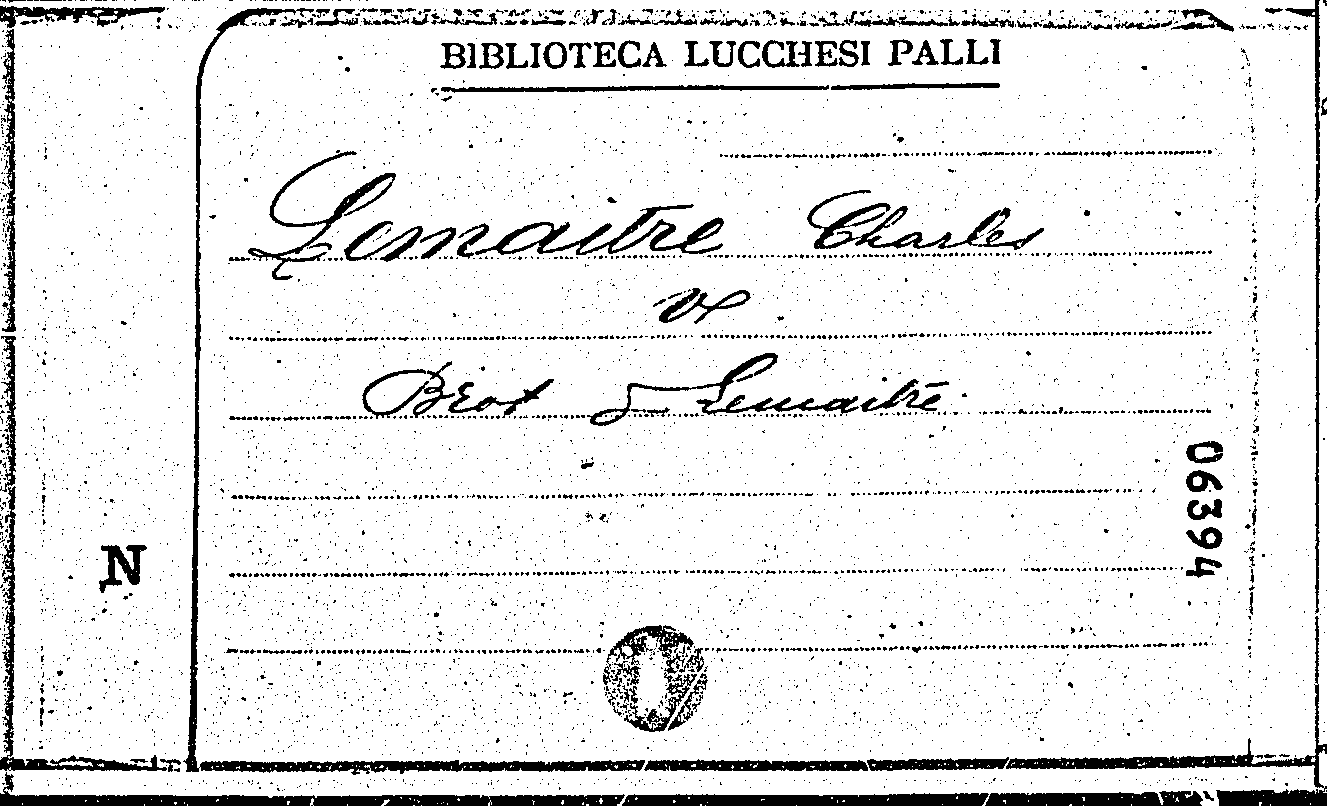 BIBLIOTECA LUCCHESI PALLI
Lemaitre Charles
v
Brot & Lemaitre
06394
N